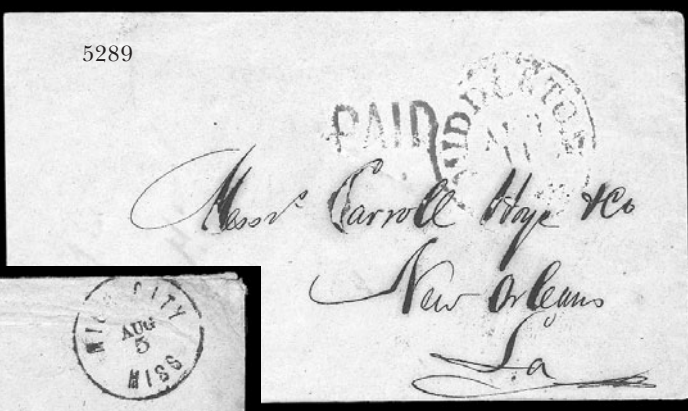 5289
PAID
MIDDLETON
Messrs Carroll Hoye & Co
New Orleans
La
CITY
AUG
5
MISS